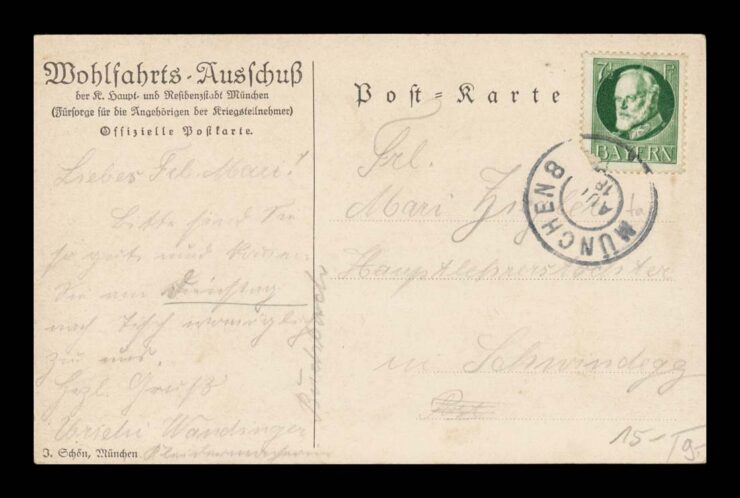 Wohlfahrts-Ausschuß
der K. Haupt- und Residenzstadt München
(Fürsorge für die Angehörigen der Kriegsteilnehmer)
Offizielle Postkarte.
Liebes Frl. Mari!
Bitte sind Sie
so gut und
Sie am Dienstag
nach Tisch womöglich
zu uns.
Hrzl. Gruß
Wandinger
J. Schön, München
Post-Karte
7½ Pf
BAYERN
MÜNCHEN 8
Frl.
Mari
Hauptlehrerstochter
in Schwindegg
15-